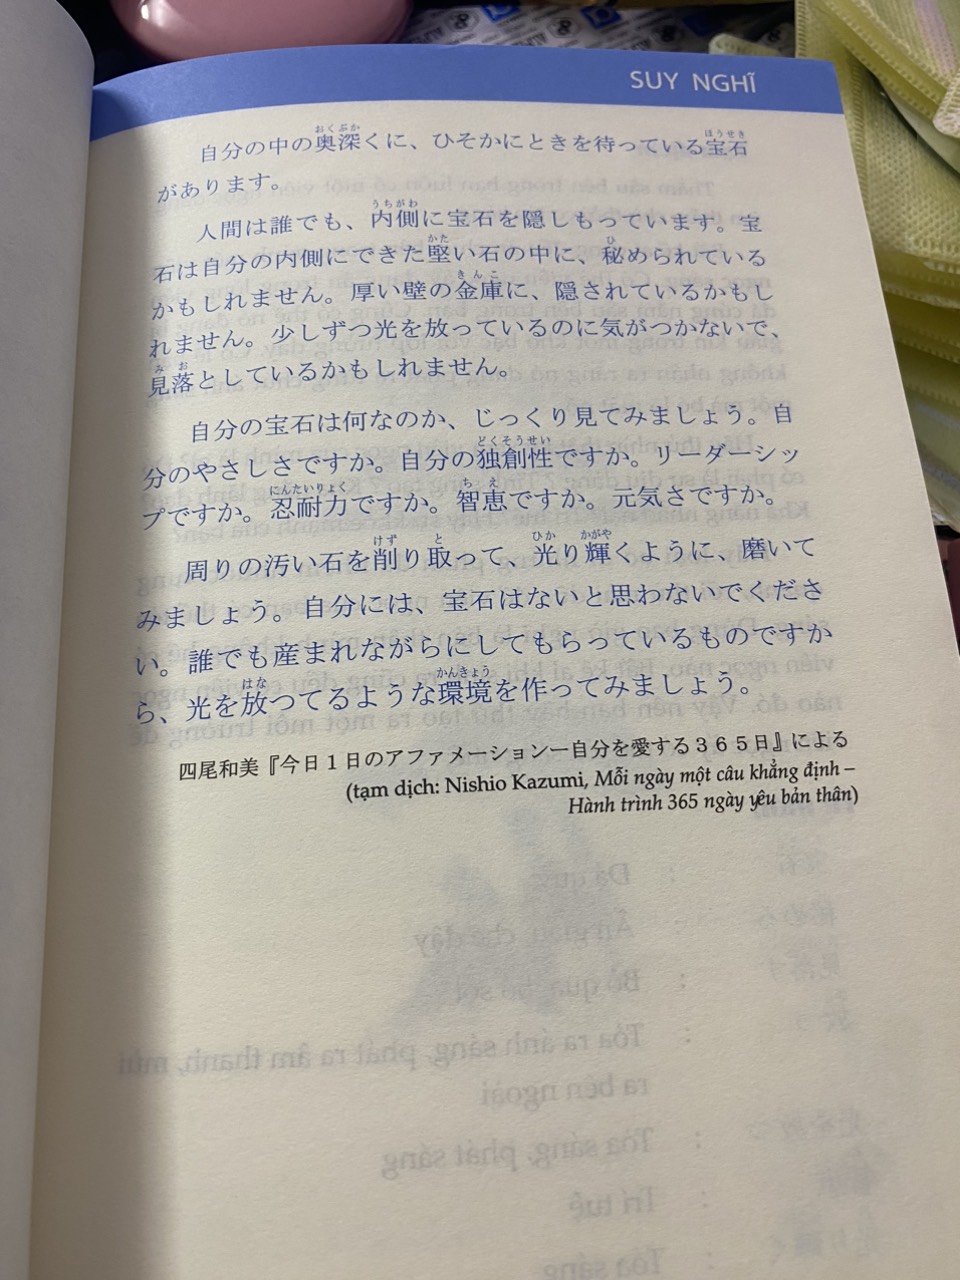 SUY NGHĨ
自分の中の奥深くに、ひそかにときを待っている宝石
があります。
人間は誰でも、内側に宝石を隠しもっています。宝
石は自分の内側にできた堅い石の中に、秘められている
かもしれません。厚い壁の金庫に、隠されているかもし
れません。少しずつ光を放っているのに気がつかないで、
見落としているかもしれません。
自分の宝石は何なのか、じっくり見てみましょう。自
分のやさしさですか。自分の独創性ですか。リーダーシッ
プですか。忍耐力ですか。智恵ですか。元気さですか。
周りの汚い石を削り取って、光り輝くように、磨いて
みましょう。自分には、宝石はないと思わないでくださ
い。誰でも産まれながらにしてもらっているものですか
ら、光を放つてるような環境を作ってみましょう。
四尾和美『今日１日のアファメーションー自分を愛する３６５日』による
(tạm dịch: Nishio Kazumi, Mỗi ngày một câu khẳng định –
Hành trình 365 ngày yêu bản thân)